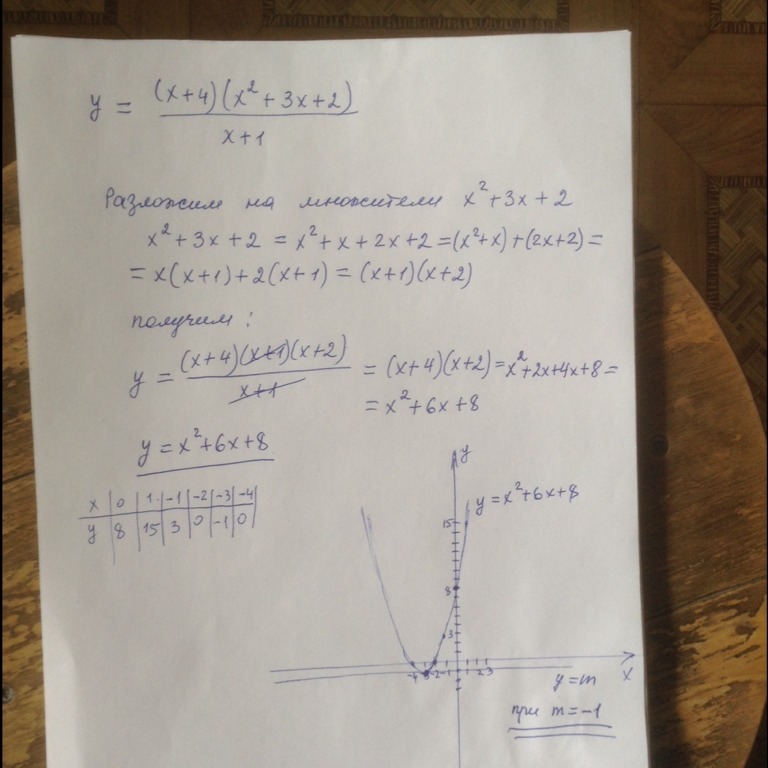 y = (x+4)(x²+3x+2) / x+1
Разложим на множители x²+3x+2
x²+3x+2 = x²+x+2x+2 =(x²+x)+(2x+2)=
= x(x+1)+2(x+1) = (x+1)(x+2)
получим:
y = (x+4)(x+1)(x+2) / x+1 = (x+4)(x+2)=x²+2x+4x+8=
= x²+6x+8
y = x²+6x+8
x 0 1 -1 -2 -3 -4
y 8 15 3 0 -1 0
y
y=x²+6x+8
15
8
3
-4 -3 -2 -1 2 3
x
y=m
при m=-1